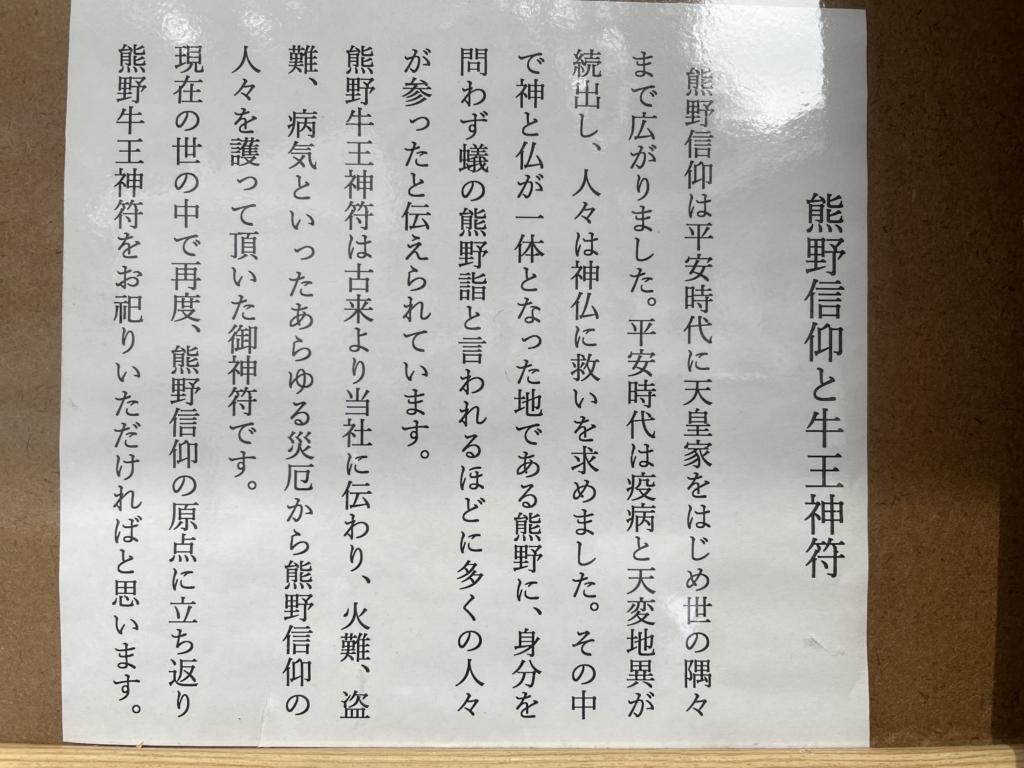 熊野信仰と牛王神符
熊野信仰は平安時代に天皇家をはじめ世の隅々
まで広がりました。平安時代は疫病と天変地異が
続出し、人々は神仏に救いを求めました。その中
で神と仏が一体となった地である熊野に、身分を
問わず蟻の熊野詣と言われるほどに多くの人々
が参ったと伝えられています。
熊野牛王神符は古来より当社に伝わり、火難、盗
難、病気といったあらゆる災厄から熊野信仰の
人々を護って頂いた御神符です。
現在の世の中で再度、熊野信仰の原点に立ち返り
熊野牛王神符をお祀りいただければと思います。